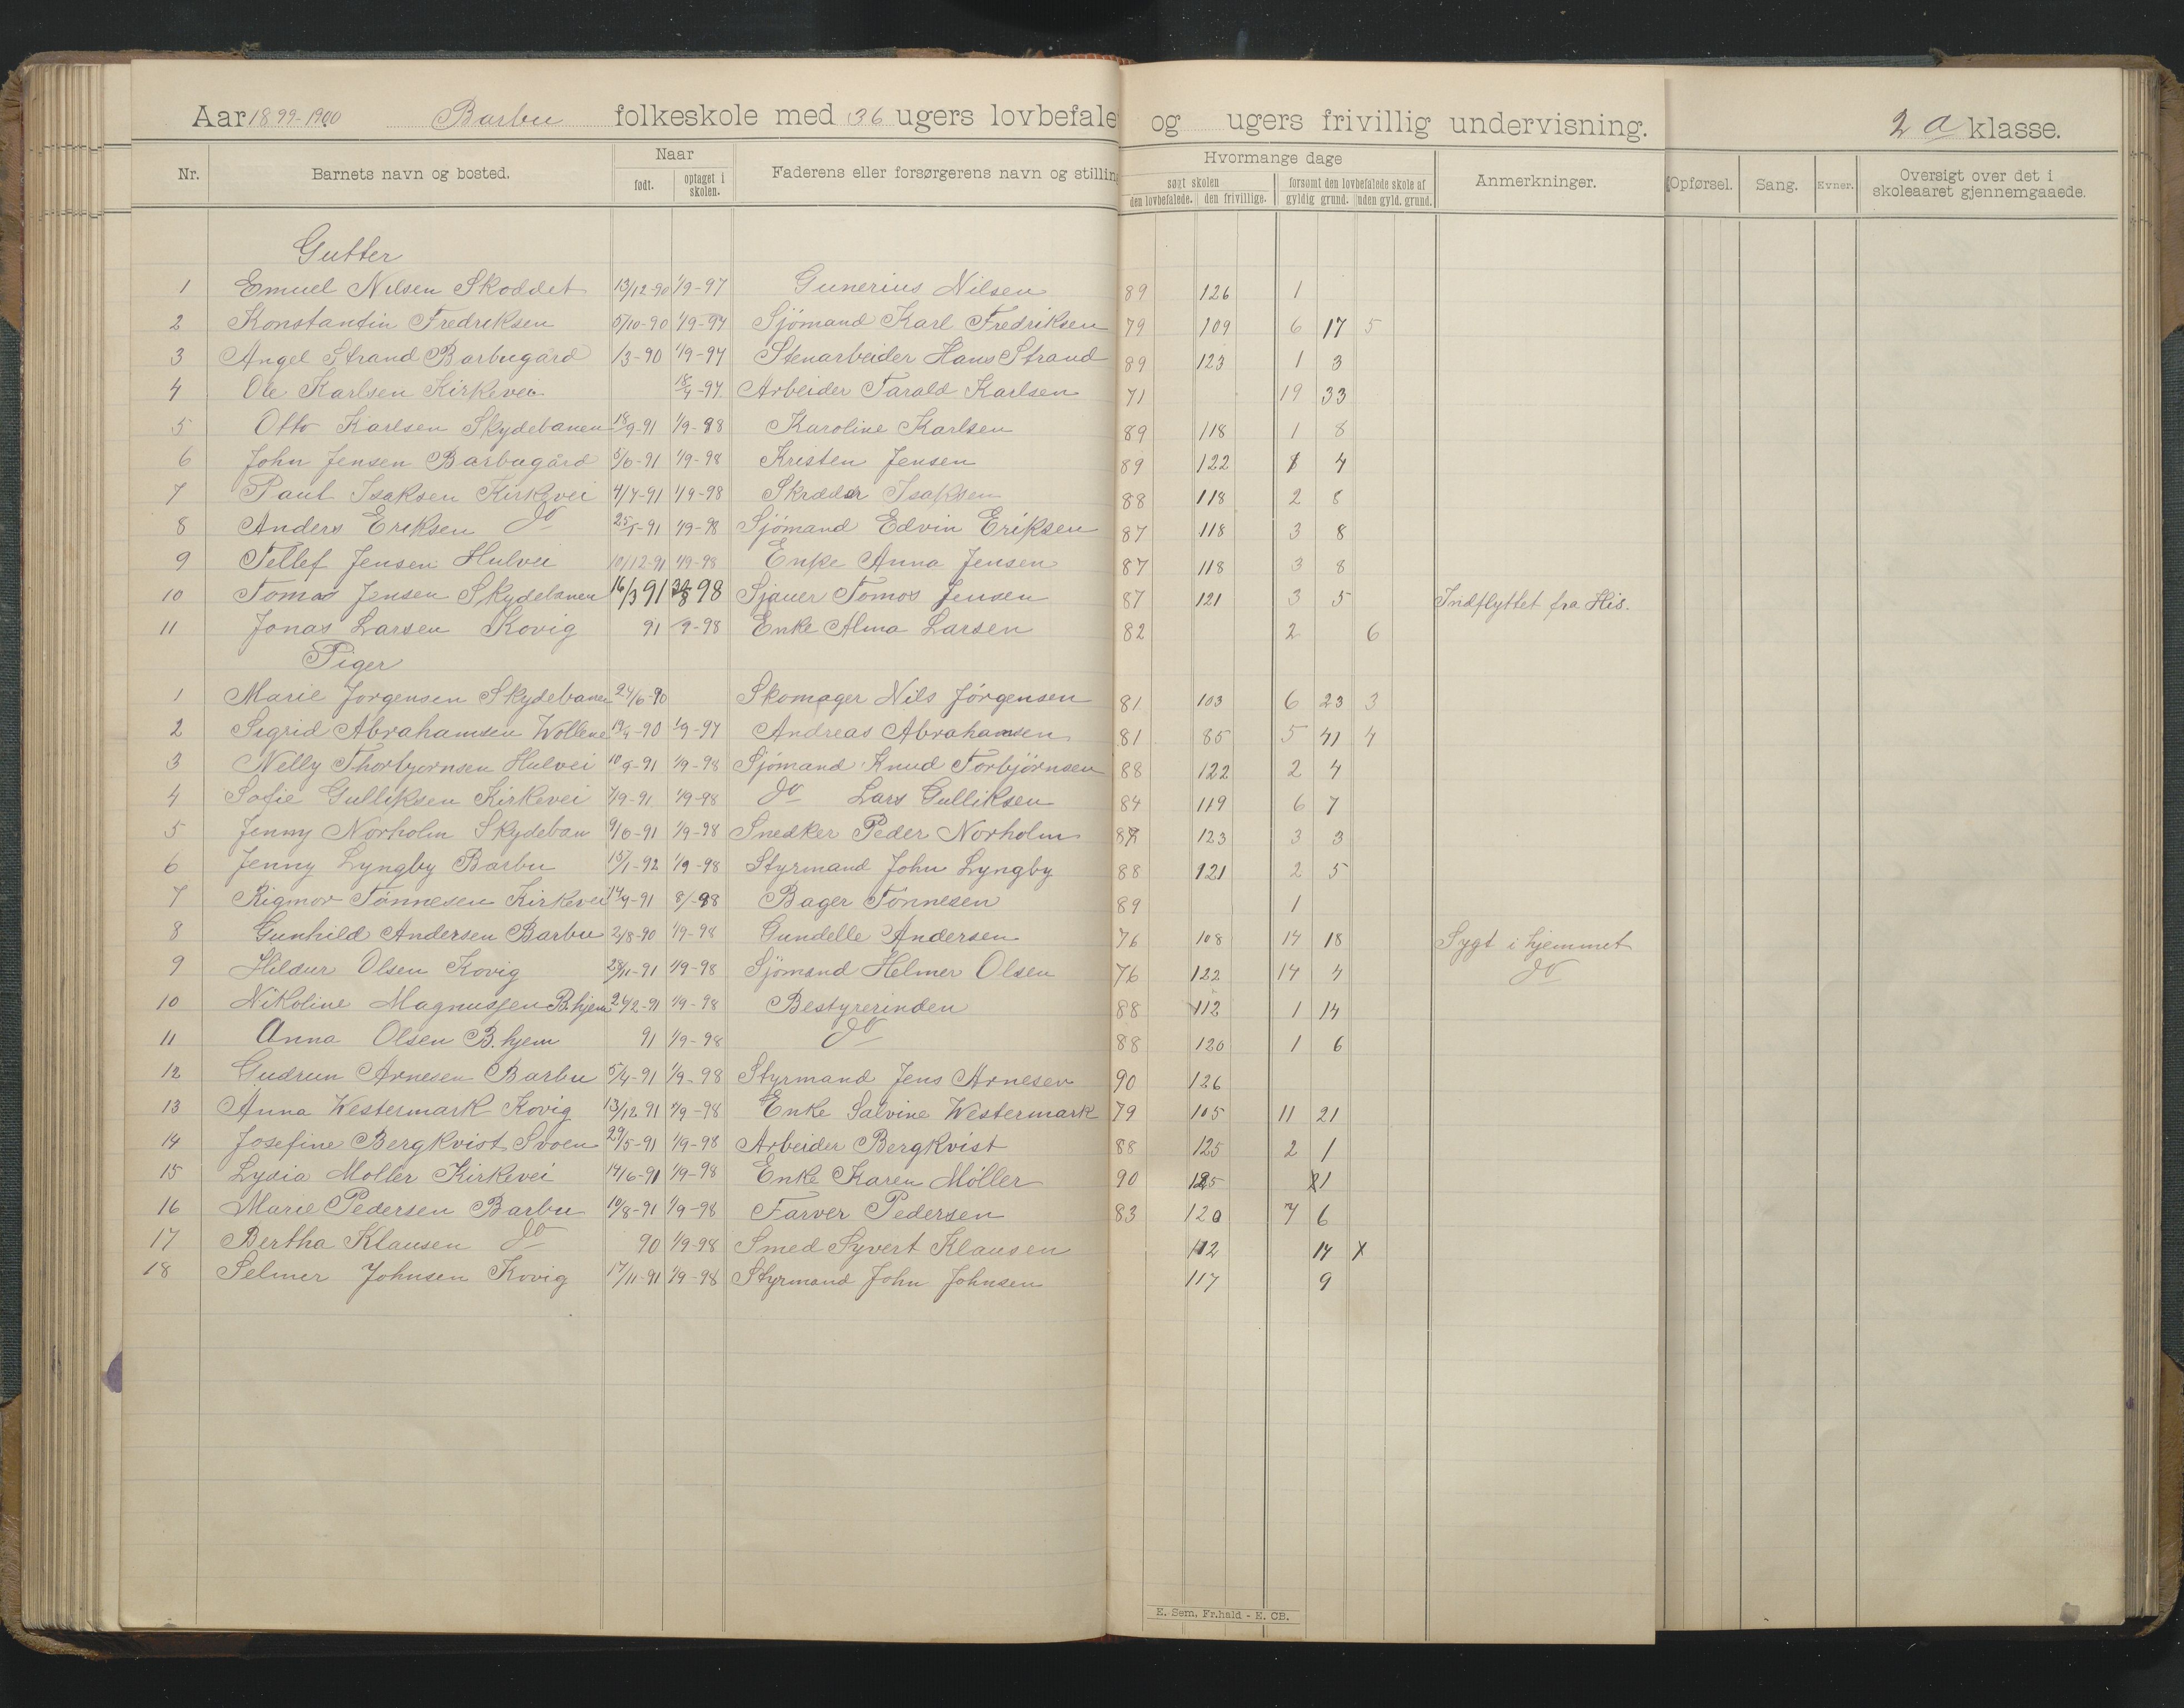 Aar 1899-1900 Barbu folkeskole med 36 ugers lovbefale og ugers frivillig undervisning. 2 a klasse.
Nr. Barnets navn og bosted. Naar født. optaget i skolen. Faderens eller forsørgerens navn og stillin Hvormange dage søgt skolen den lovbefalede. den frivillige. forsømt den lovbefalede skole af gyldig grund. uden gyld. grund. Anmerkninger. Opførsel. Sang. Evner. Oversigt over det i skoleaaret gjennemgaaede.
Gutter
1 Emuel Nilsen Skoddet 13/12-90 1/9-97 Gunerius Nilsen 89 126 1
2 Konstantin Fredriksen 5/10-90 1/9-97 Sjömand Karl Fredriksen 79 109 6 17 5
3 Angel Strand Barbugård 1/3-90 1/9-97 Stenarbeider Hans Strand 89 123 1 3
4 Ole Karlsen Kirkevei -97 Arbeider Tarald Karlsen 71 19 33
5 Otto Karlsen Skydebanen 18/9-91 1/9-98 Karoline Karlsen 89 118 1 8
6 John Jensen Barbugård 5/6-91 1/9-98 Kristen Jensen 89 122 1 4
7 Paul Isaksen Kirkevei 4/7-91 1/9-98 Skrædder Isaksen 88 118 2 8
8 Anders Eriksen do 1/9-98 Sjömand Edvin Eriksen 87 118 3 8
9 Tellef Jensen Hulvei 10/12-91 1/9-98 Enke Anna Jensen 87 118 3 8
10 Tomas Jensen Skydebanen 16/3 91 98 Sjauer Tomos Jensen 87 121 3 5 Indflyttet fra His.
11 Jonas Larsen Kovig 91 9-98 Enke Alma Larsen 82 2 6
Piger
1 Marie Jorgensen Skydebanen 24/6-90 Skomager Nils Jörgensen 81 103 6 23 3
2 Sigrid Abrahamsen Wollene -90 1/9-97 Andreas Abrahamsen 81 85 5 41 4
3 Nelly Thorbjornsen Hulvei 10/9-91 1/9-98 Sjömand Knud Torbjörnsen 88 122 2 4
4 Sofie Gulliksen Kirkevei 7/9-91 1/9-98 do Lars Gulliksen 84 119 6 7
5 Jenny Norholm Skydeban 9/6-91 1/9-98 Snedker Peder Norholm 87 123 3 3
6 Jenny Lyngby Barbu 15/1-92 1/9-98 Styrmand John Lyngby 88 121 2 5
7 Rigmor Tönnesen Kirkevei -91 8/-98 Bager Tönnesen 89 1
8 Gunhild Andersen Barbu 2/8-90 1/9-98 Gundelle Andersen 76 108 14 18 Sygt i hjemmet
9 Hildur Olsen Kovig 28/11-91 1/9-98 Sjömand Helmer Olsen 76 122 14 4 do
10 Nikoline Magnussen B.hjem 1/9-98 Bestyrerinden 88 112 1 14
11 Anna Olsen B. hjem 91 1/9-98 do 88 120 1 6
12 Gudrun Arnesen Barbu 5/4-91 1/9-98 Styrmand Jens Arnesen 90 126
13 Anna Westermark Kovig 13/12 91 1/9-98 Enke Salvine Westermark 79 105 11 21
14 Josefine Bergkvist Svoen 29/5-91 1/9-98 Arbeider Bergkvist 88 125 2 1
15 Lydia Moller Kirkevei 14/6-91 1/9-98 Enke Karen Möller 90 125 1
16 Marie Pedersen Barbu 10/8-91 1/9-98 Farver Pedersen 83 120 7 6
17 Bertha Klausen do 90 1/9-98 Smed Syvert Klausen 112 14 x
18 Selmer Johnsen Kovig 17/11-91 1/9-98 Styrmand John Johnsen 117 9
E. Sem, Fr.hald - E. CB.